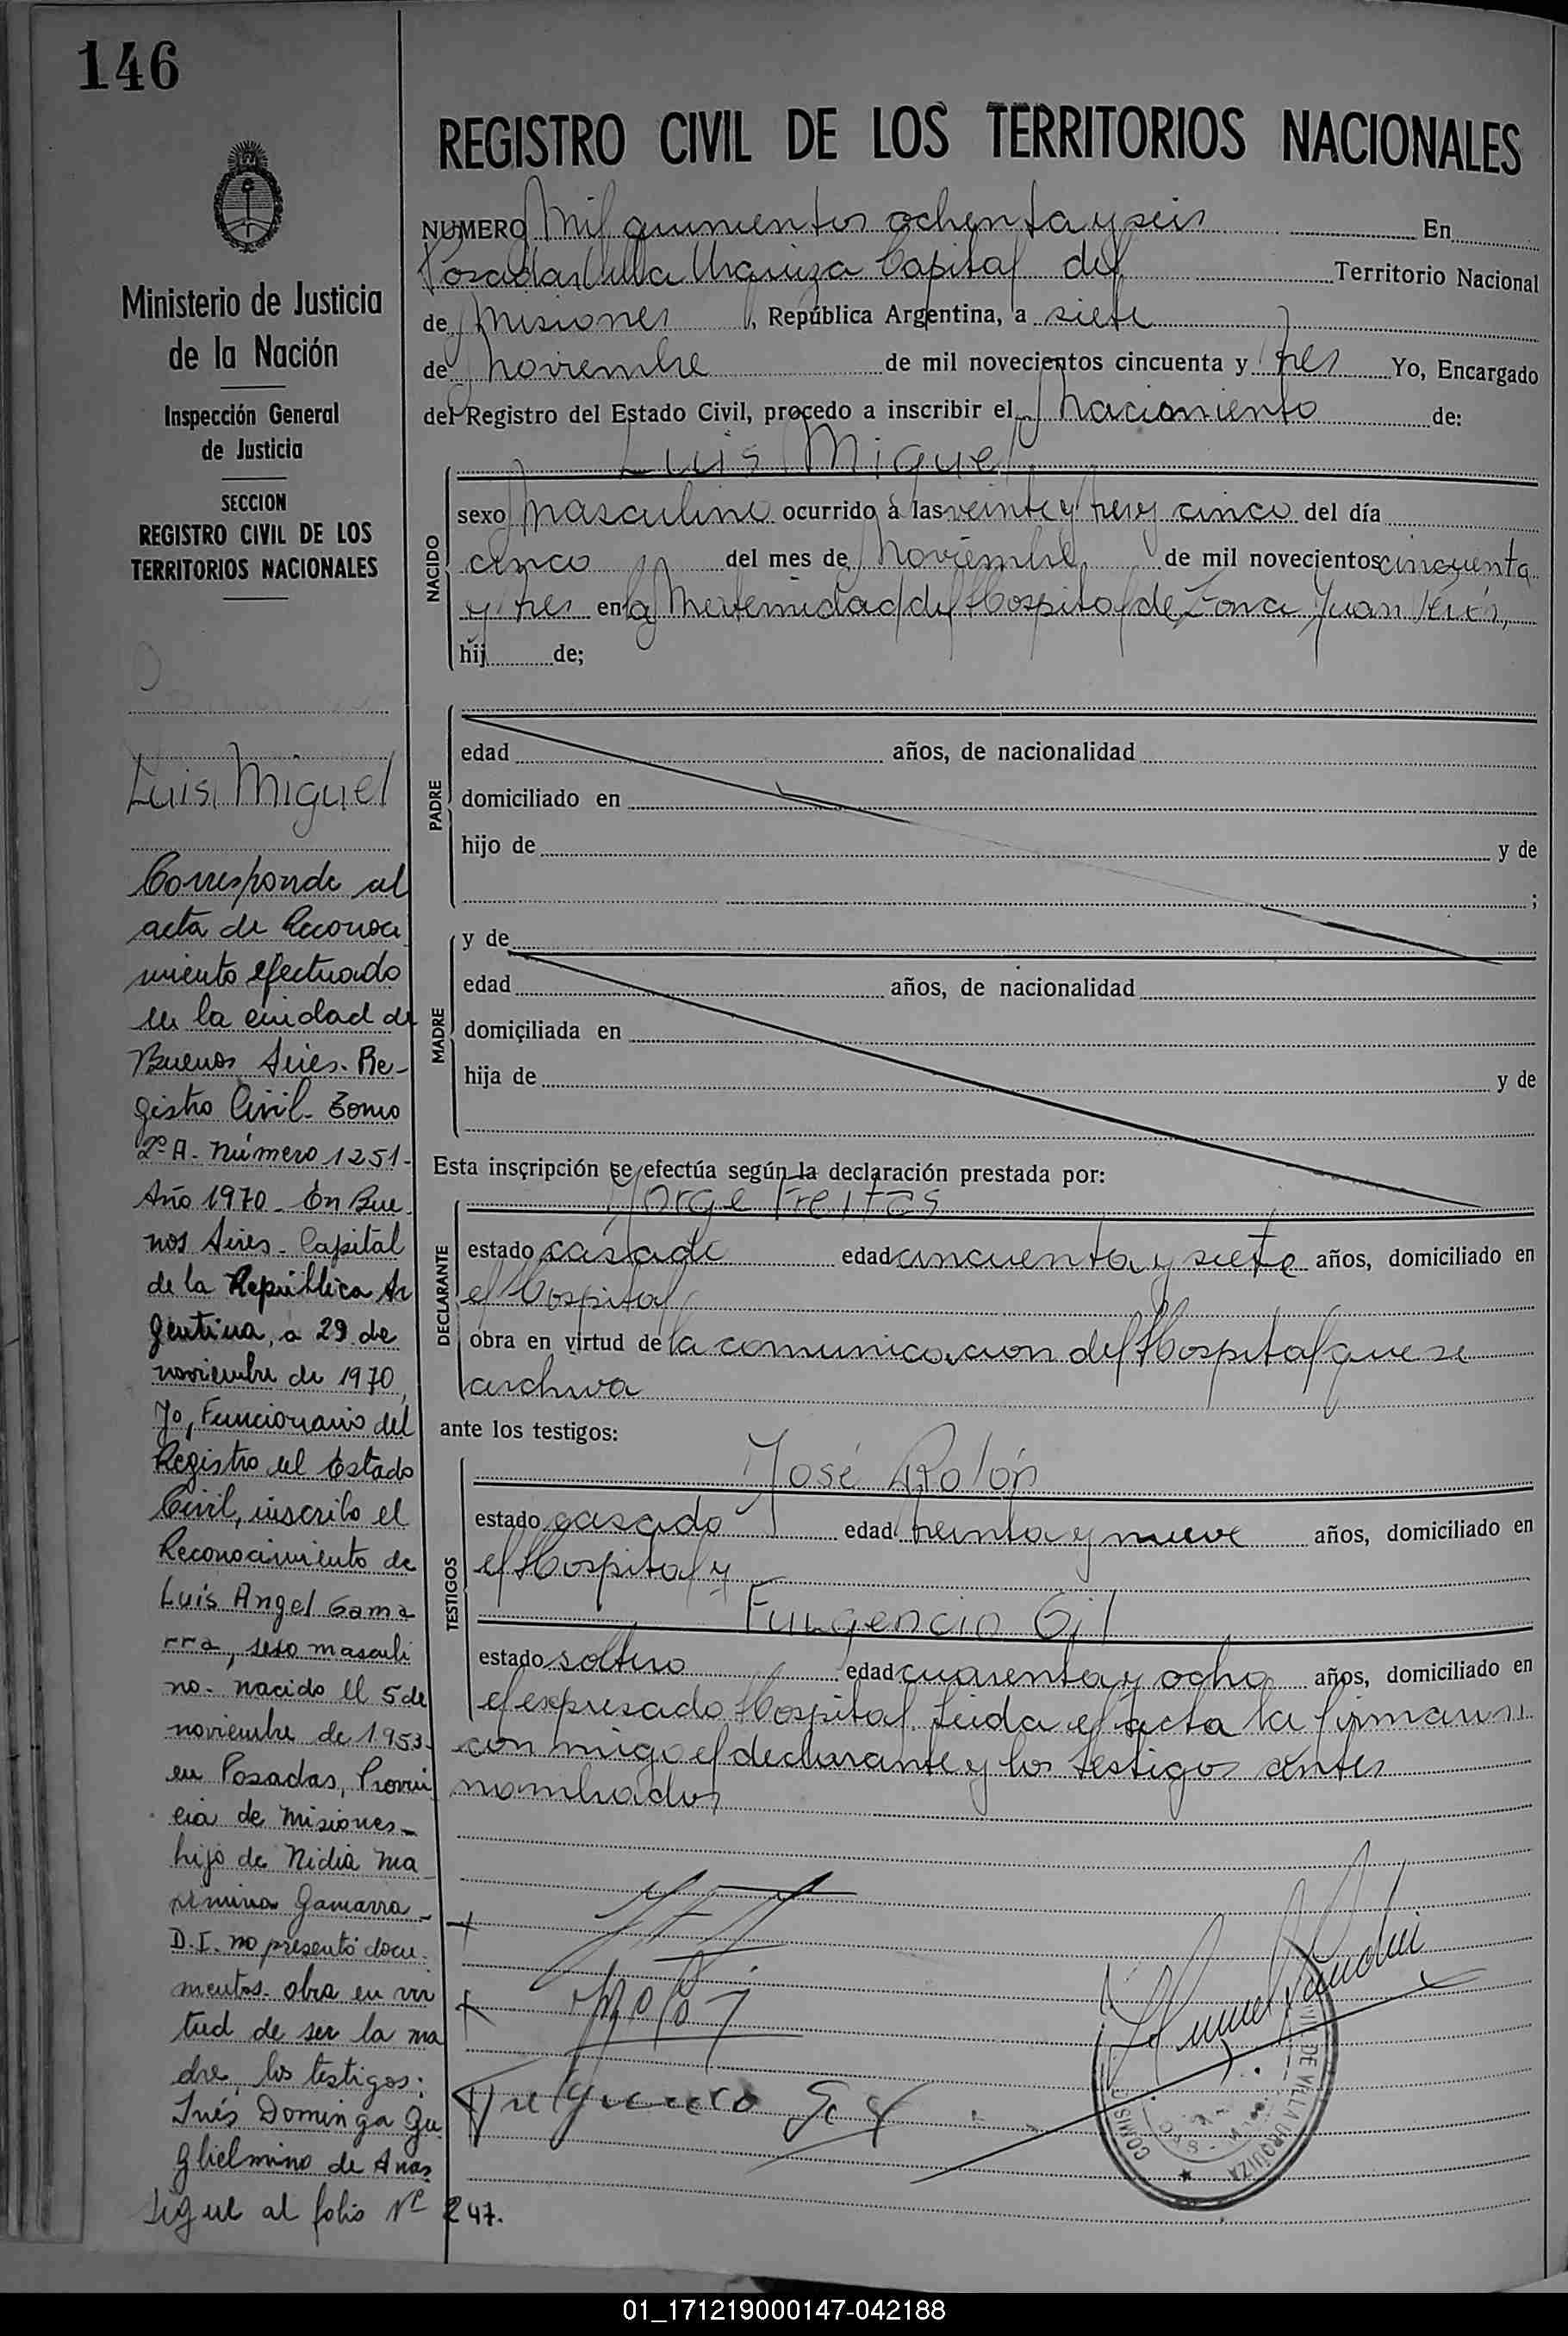 146
Ministerio de Justicia
de la Nación
Inspección General
de Justicia
SECCION
REGISTRO CIVIL DE LOS
TERRITORIOS NACIONALES
Luis Miguel
Corresponde al
acta de Reconoci
miento efectuado
en la ciudad de
Buenos Aires. Re-
gistro Civil- Tomo
2º A. Número 1251-
Año 1970- En Bue-
nos Aires- Capital
de la República Ar
gentina, a 29 de
noviembre de 1970,
Yo, Funcionario del
Registro del Estado
Civil, inscribo el
Reconocimiento de
Luis Angel Gama
rra, sexo masculi
no- nacido el 5 de
noviembre de 1953-
en Posadas, Provin
cia de Misiones-
hijo de Nidia Ma
ximina Gamarra-
D.I. no presentó docu-
mentos. obra en vir
tud de ser la ma
dre, los testigos:
Inés Dominga Gu
glielmino de Anas
sigue al folio Nº 247.
REGISTRO CIVIL DE LOS TERRITORIOS NACIONALES
NUMERO Mil quinientos ochenta y seis En
Posadas Villa Urquiza Capital del Territorio Nacional
de Misiones, República Argentina, a siete
de Noviembre de mil novecientos cincuenta y tres Yo, Encargado
del Registro del Estado Civil, procedo a inscribir el Nacimiento de:
Luis Miguel
NACIDO
sexo Masculino ocurrido a las veinte y tres y cinco del día
cinco del mes de Noviembre de mil novecientos cincuenta
y tres en la Maternidad del Hospital de Zona Juan Perón,
hij de;
PADRE
edad años, de nacionalidad
domiciliado en
hijo de y de
;
MADRE
y de
edad años, de nacionalidad
domiciliada en
hija de y de
Esta inscripción se efectúa según la declaración prestada por:
Jorge Freitas
DECLARANTE
estado casado edad cincuenta y siete años, domiciliado en
el Hospital
obra en virtud de la comunicacion del Hospital que se
archiva
ante los testigos:
José Rolón
TESTIGOS
estado casado edad treinta y nueve años, domiciliado en
el Hospital y
Fungencio Gil
estado soltero edad cuarenta y ocho años, domiciliado en
el expresado Hospital. Leida el acta la firmaron
con migo el declarante y los testigos antes
nombrados
CIVIL DE VILLA URQUIZA
01_171219000147-042188